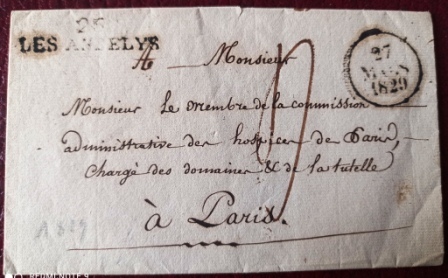 26
LES ANDELYS
A Monsieur
27
MARS
1829
Monsieur Le membre de la commission
administrative des hospices de Paris,
chargé des domaines & de la tutelle
à Paris.
1829